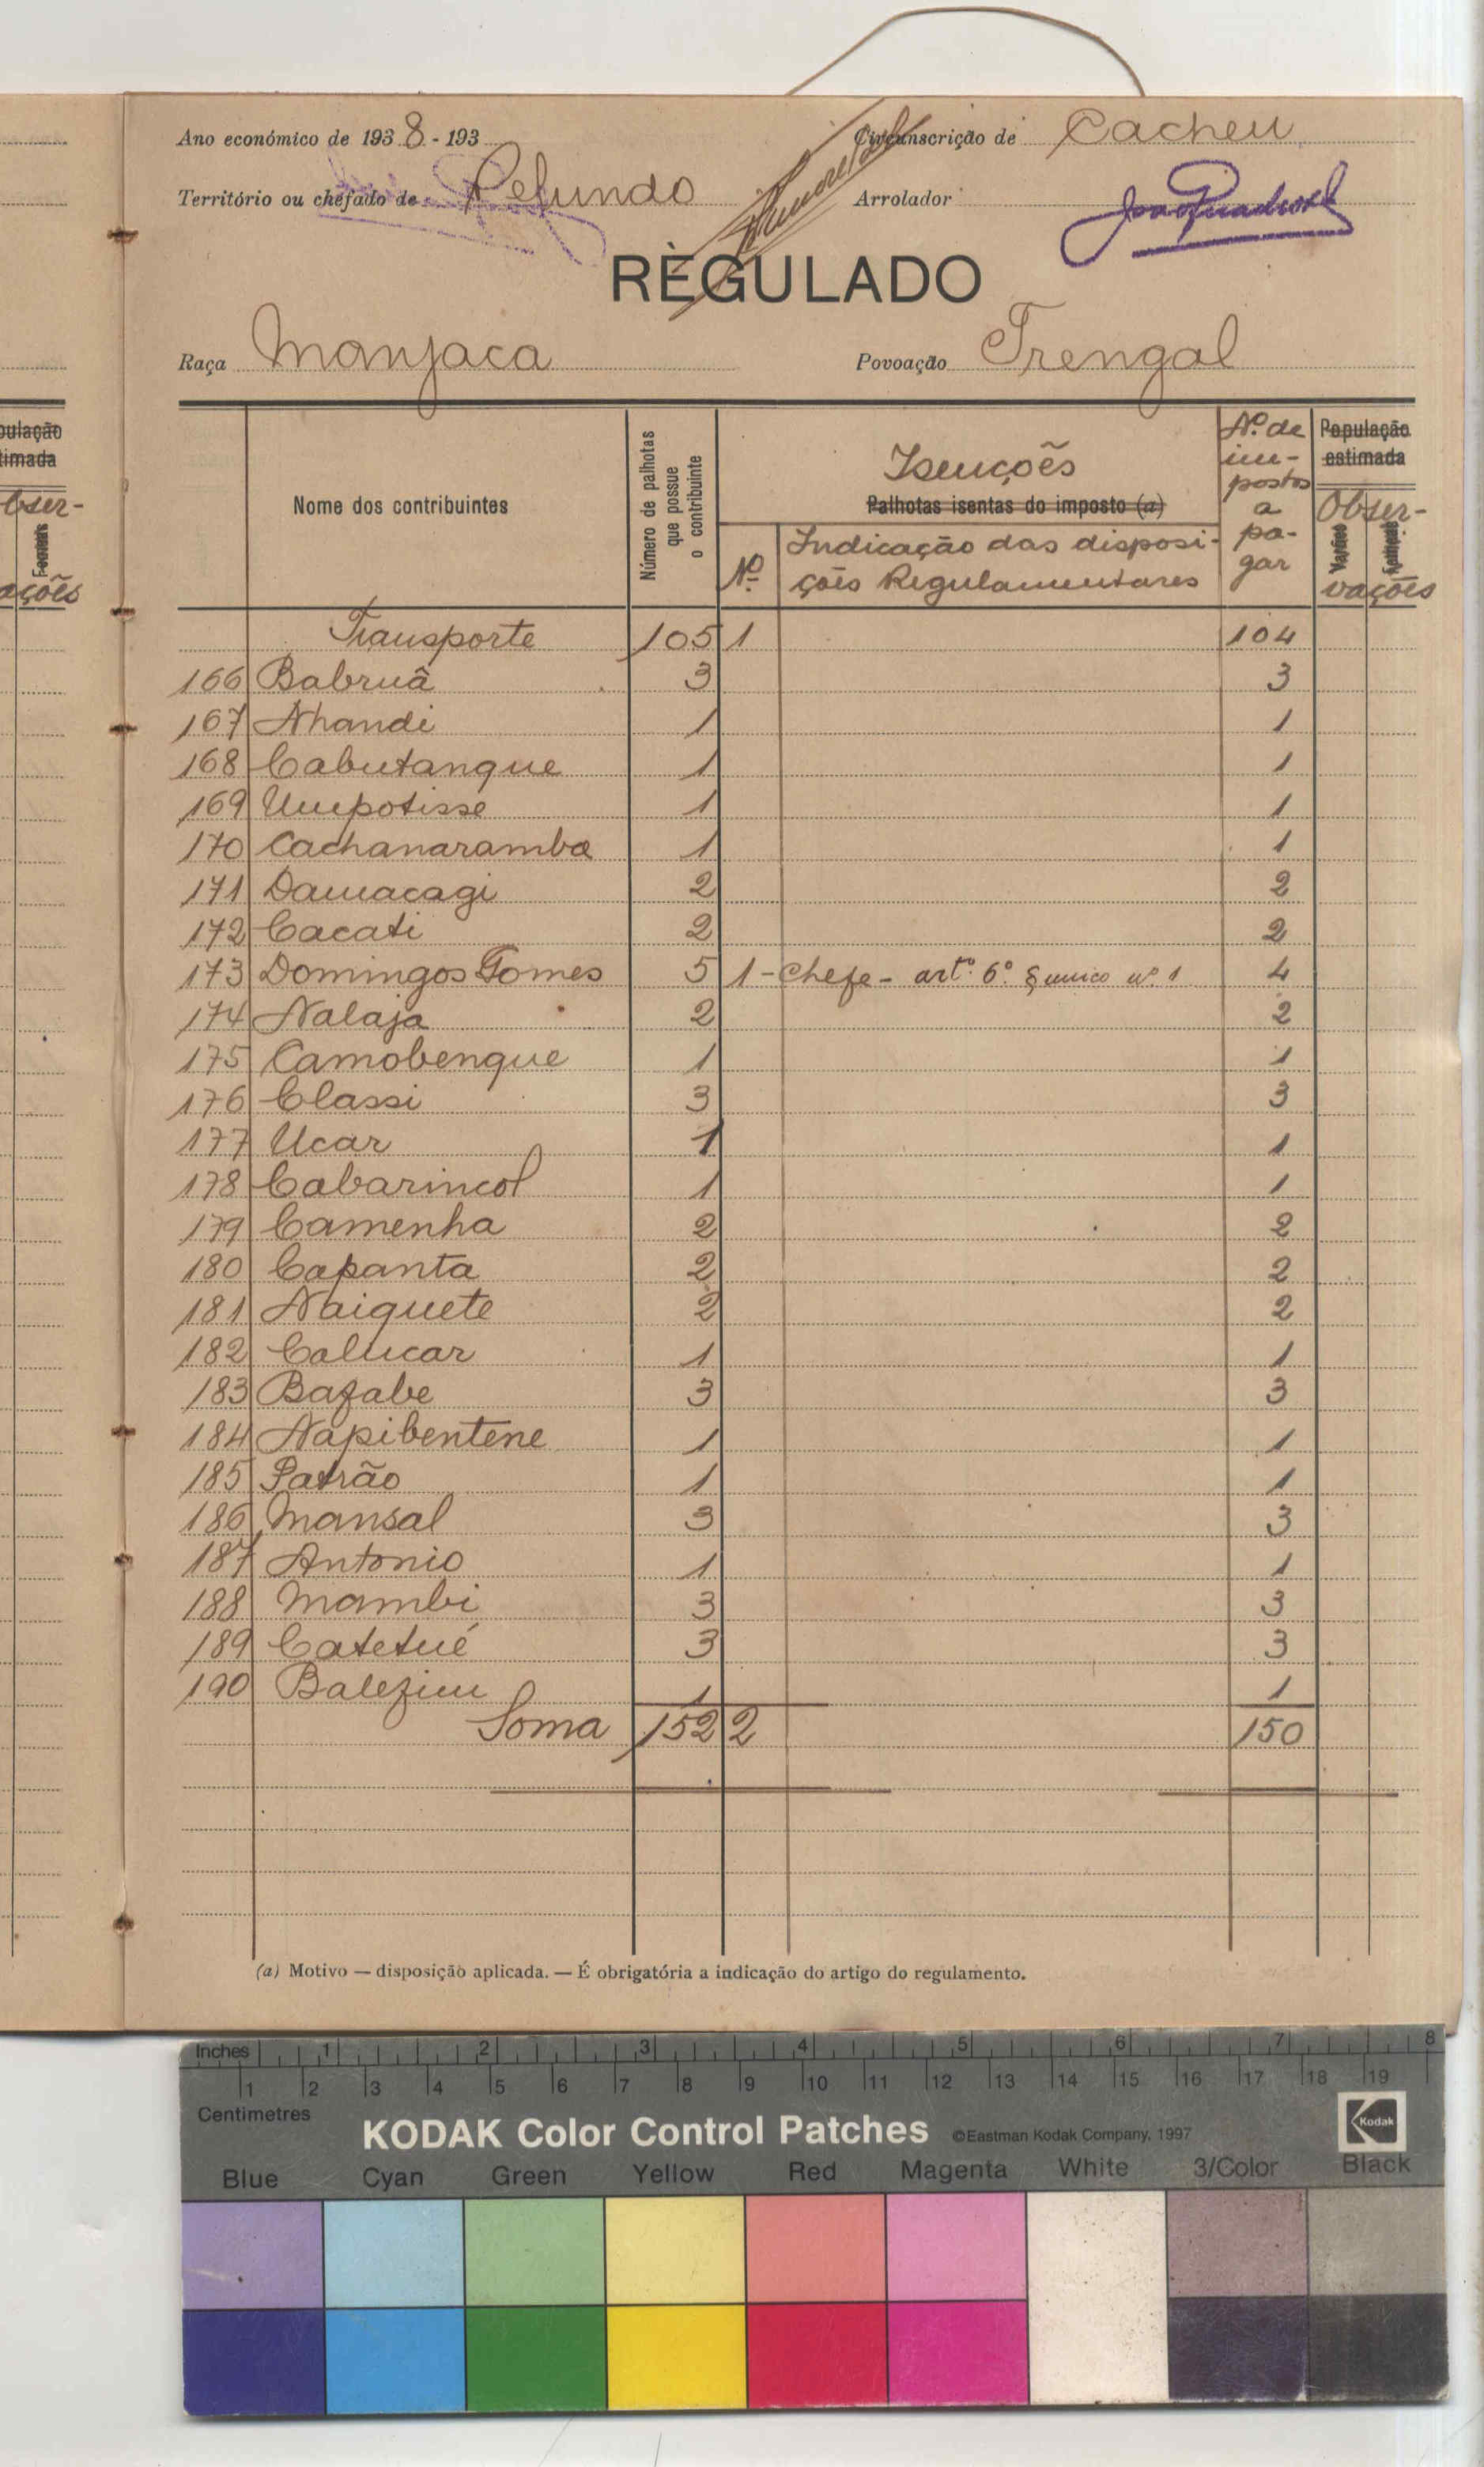 Ano económico de 1938-193
Circunscrição de Cacheu
Território ou chefado de Pefundo
Arrolador
REGULADO
Raça Manjaca
Povoação Trengal
Nome dos contribuintes
Número de palhotas que possue o contribuinte
Isenções
Palhotas isentas do imposto (a)
Nº
Indicação das disposi-
ções Regulamentares
Nº de
im-
postos
a
pa-
gar
População
estimada
Obser-
vações
pulação
timada
bser-
ações
Transporte 105 1 104
166 Babruâ 3 3
167 Nhandi 1 1
168 Cabutanque 1 1
169 Umpotisse 1 1
170 Cachanaramba 1 1
171 Damacagi 2 2
172 Cacati 2 2
173 Domingos Gomes 5 1 - Chefe - artº. 6º. § unico nº. 1 4
174 Nalaja 2 2
175 Camobenque 1 1
176 Classi 3 3
177 Ucar 1 1
178 Cabarincol 1 1
179 Camenha 2 2
180 Capanta 2 2
181 Naiquete 2 2
182 Calucar 1 1
183 Bafabe 3 3
184 Napibentene 1 1
185 Patrão 1 1
186 Mansal 3 3
187 Antonio 1 1
188 Mambi 3 3
189 Catetué 3 3
190 Balezim 1 1
Soma 152 2 150
(a) Motivo — disposição aplicada. — É obrigatória a indicação do artigo do regulamento.
Inches 1 2 3 4 5 6 7 8
1 2 3 4 5 6 7 8 9 10 11 12 13 14 15 16 17 18 19
Centimetres
KODAK Color Control Patches ©Eastman Kodak Company, 1997 Kodak
Blue Cyan Green Yellow Red Magenta White 3/Color Black